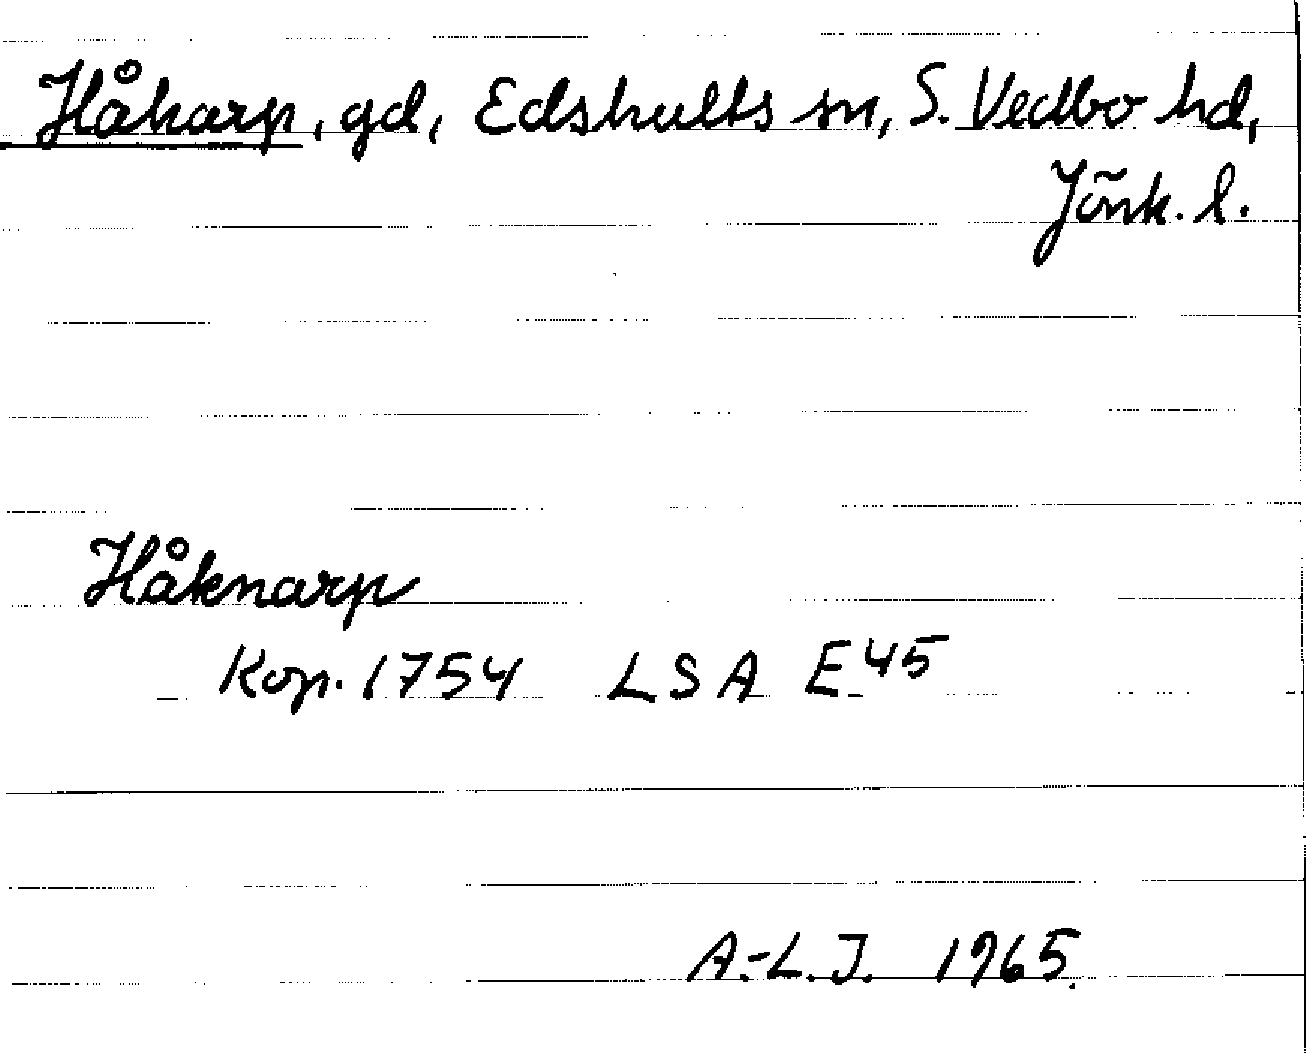 Håkarp, gd, Edshults sn, S. Vedbo hd,
Jönk. l.
Håknarp
Kop. 1754 LSA E 45
A.-L. J. 1965.